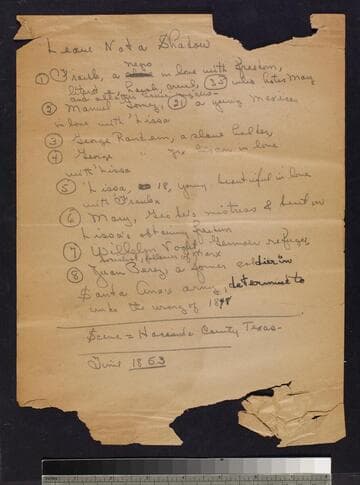 Leave Not a Shadow
negro
① Frank, a in love with freedom,
literate, loyal, cruel, ㉟ who hates Mary
and
② Manuel Gomez, ㉑ a young Mexican
in love with 'Lissa
③ George Rankem, a slave holder,
④ George " Jr. his son in love
with 'Lissa
⑤ 'Lissa, 18, young beautiful in love
with Frank
⑥ Mary, mistress & bent on
Lissa's obtaining freedom
⑦ Wilhelm Vogel German refugee,
socialist, follower of Marx
⑧ Juan Perez, a former soldier in
Santa Ana's army, determined to
undo the wrong of 1848
Scene = County Texas-
Time 1853